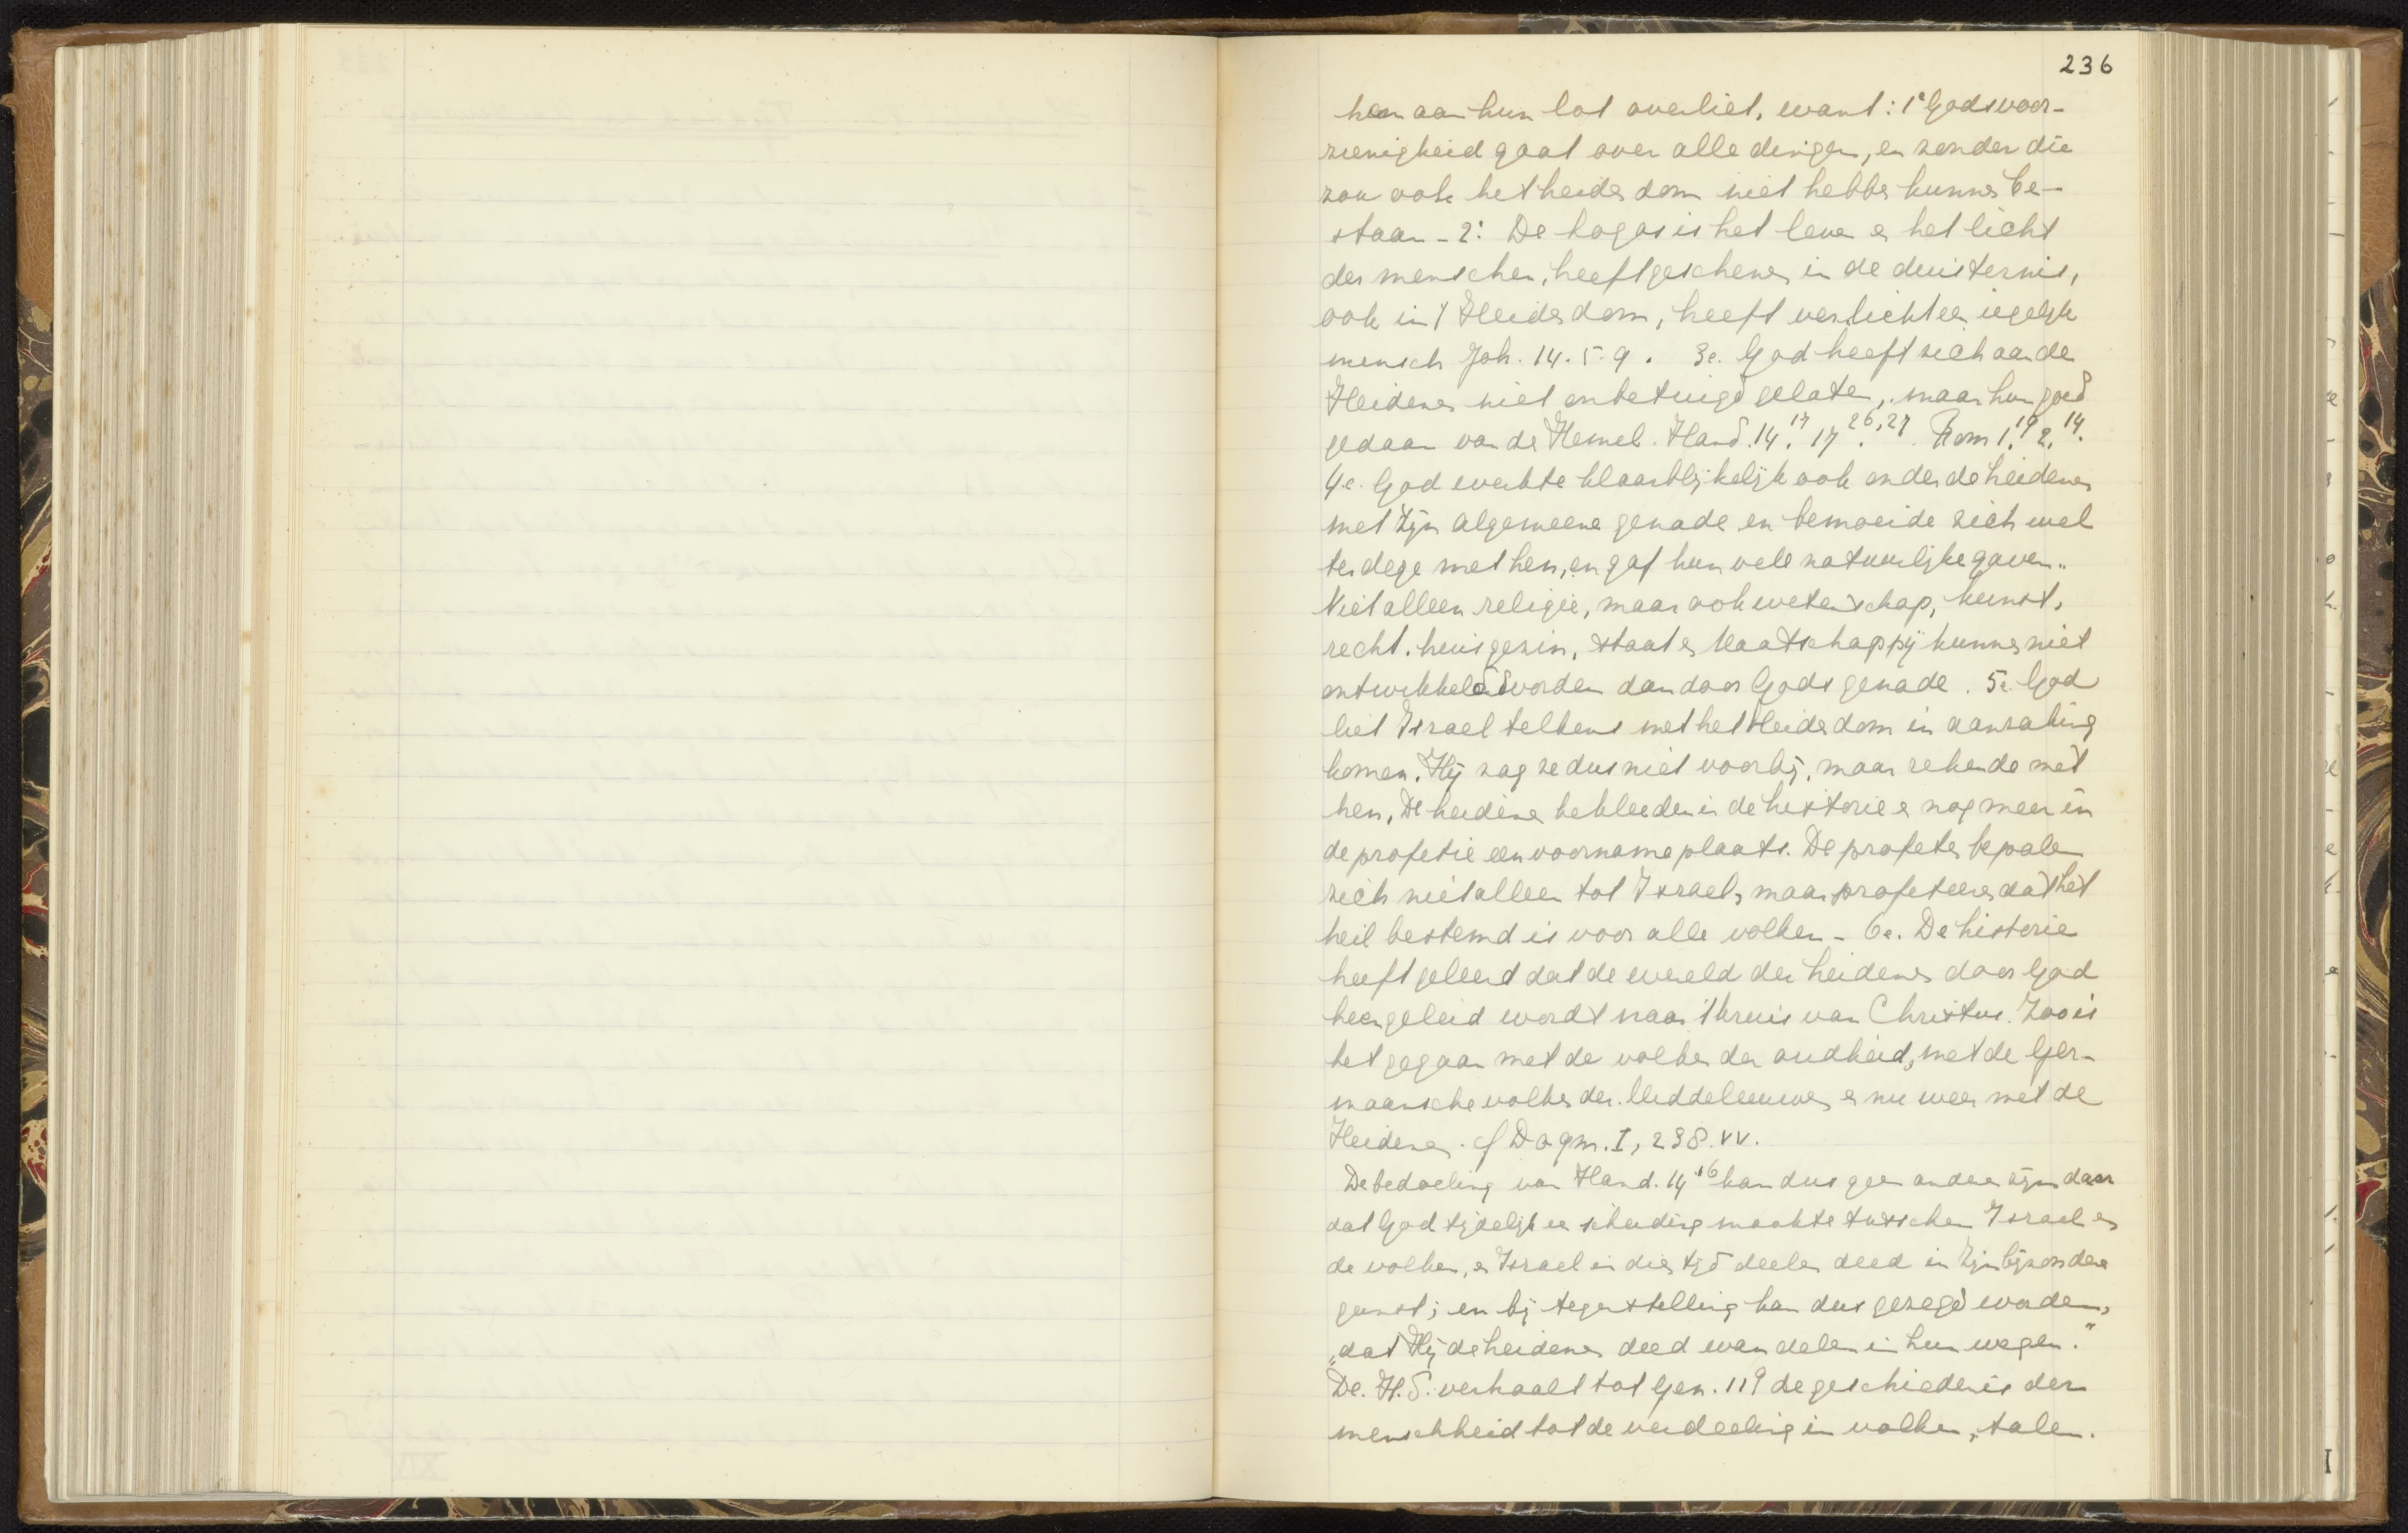 236
hen aan hun lot overliet, want: 1e Gods voor-
zienigheid gaat over alle dingen, en zonder die
zou ook het heidendom niet hebben kunnen be-
staan - 2e De Logos is het leven en het licht
der menschen, heeft geschenen in de duisternis,
ook in 't Heidendom, heeft verlicht een iegelijk
mensch Joh. 14. 5. 9. 3e. God heeft zich aan de
Heidenen niet onbetuigd gelaten, maar hun goed
gedaan van de Hemel. Hand. 14.17 17.26,27 Rom 1.19 2.14.
4e. God werkte klaarblijkelijk ook onder de heidenen
met Zijn algemeene genade en bemoeide zich wel
terdege met hen, en gaf hun vele natuurlijke gaven.
Niet alleen religie, maar ook wetenschap, kunst,
recht, huisgezin, staat en Maatschappij kunnen niet
ontwikkeld worden dan door Gods genade. 5e. God
liet Israel telkens met het Heidendom in aanraking
komen. Hij zag ze dus niet voorbij, maar rekende met
hen. De heidenen bekleeden in de historie en nog meer in
de profetie een voorname plaats. De profeten bepalen
zich niet alleen tot Israel, maar profeteeren dat het
heil bestemd is voor alle volken - 6e. De historie
heeft geleerd dat de wereld der heidenen door God
heengeleid wordt naar 't kruis van Christus. Zoo is
het gegaan met de volken der oudheid, met de Ger-
maansche volken der Middeleeuwen en nu weer met de
Heidenen. cf Dogm. I, 238. vv.
De bedoeling van Hand. 14 16 kan dus geen andere zijn dan
dat God tijdelijk een scheiding maakte tusschen Israel en
de volken, en Israel in dien tijd deelen deed in Zijn bijzondere
gunst; en bij tegenstelling kan dus gezegd worden,
„dat Hij de heidenen deed wandelen in hun wegen."
De. H.S. verhaalt tot Gen. 11 9 de geschiedenis der
menschheid tot de verdeeling in volken, talen.